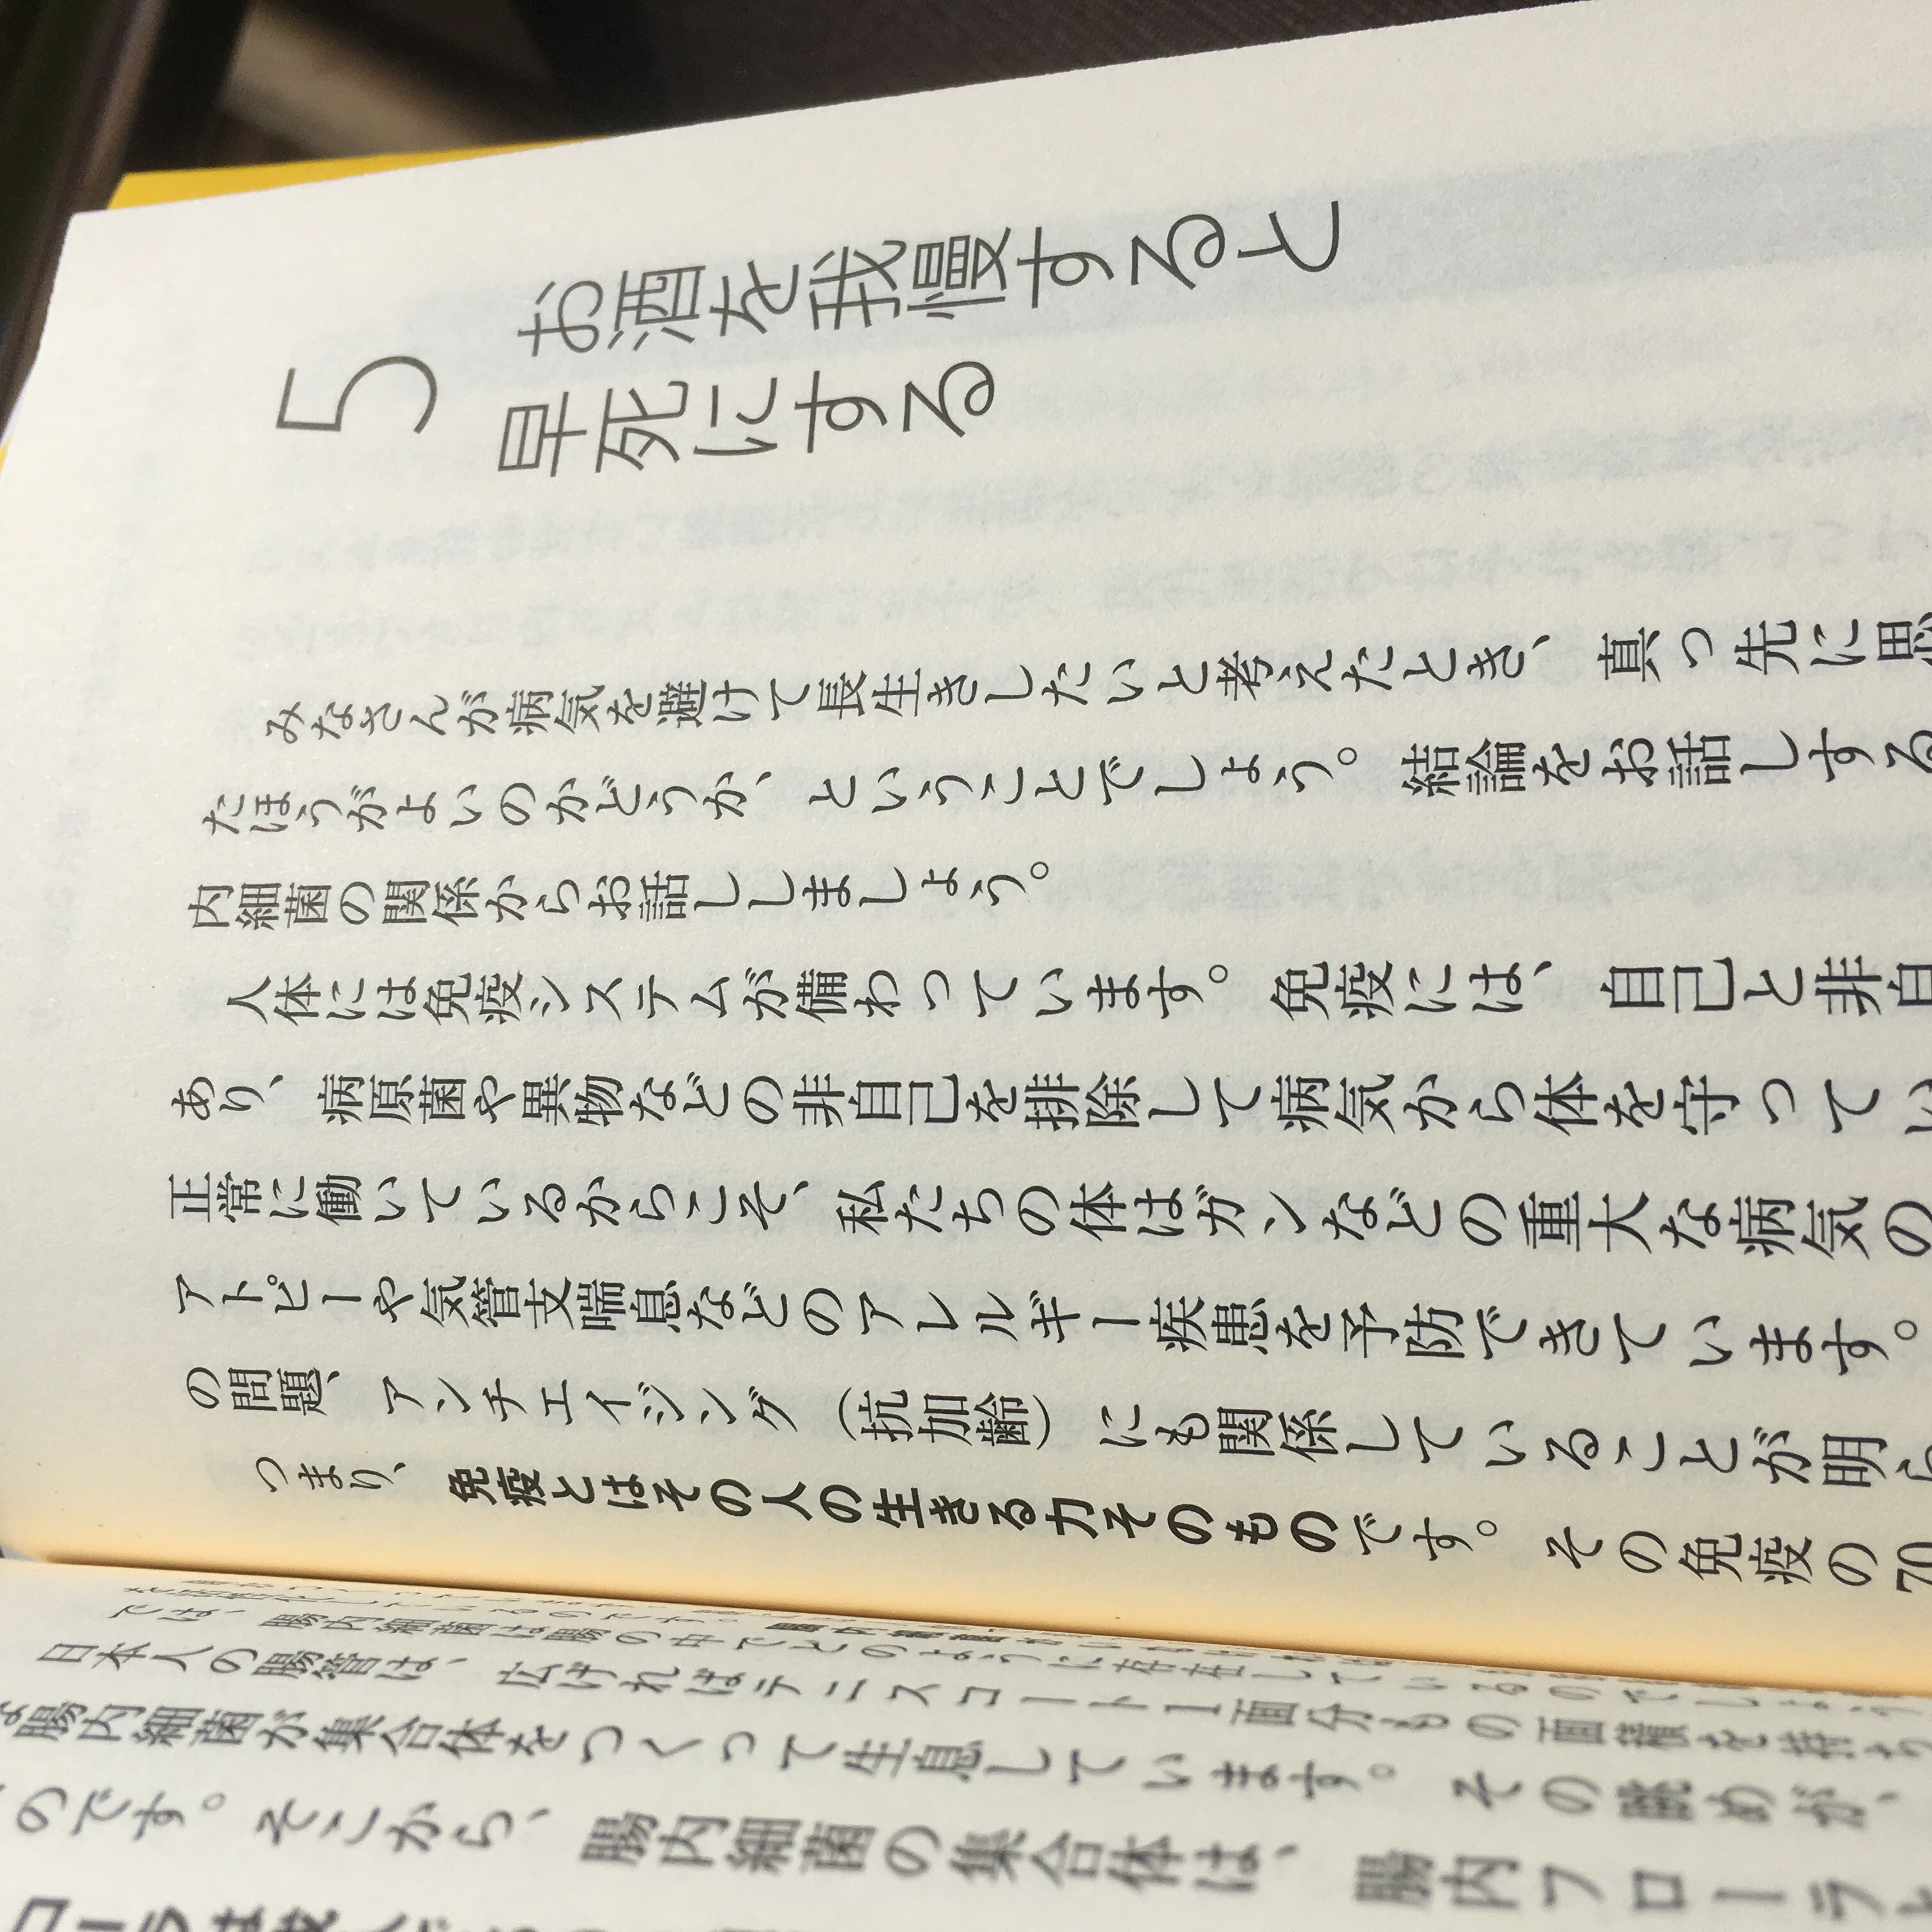 5
お酒を我慢すると
早死にする
みなさんが病気を避けて長生きしたいと考えたとき、真っ先に思
たほうがよいのかどうか、ということでしょう。結論をお話しする
内細菌の関係からお話ししましょう。
人体には免疫システムが備わっています。免疫には、自己と非自
あり、病原菌や異物などの非自己を排除して病気から体を守ってい
正常に働いているからこそ、私たちの体はガンなどの重大な病気の
アトピーや気管支喘息などのアレルギー疾患を予防できています。
の問題、アンチエイジング（抗加齢）にも関係していることが明ら
つまり、免疫とはその人の生きる力そのものです。その免疫の70
では、腸内細菌は腸の中でどのように存在しているのでしょう
日本人の腸管は、広げればテニスコート1面分もの面積を持ち
腸内細菌が集合体をつくって生息しています。その眺めが、
のです。そこから、腸内細菌の集合体は、腸内フローラと